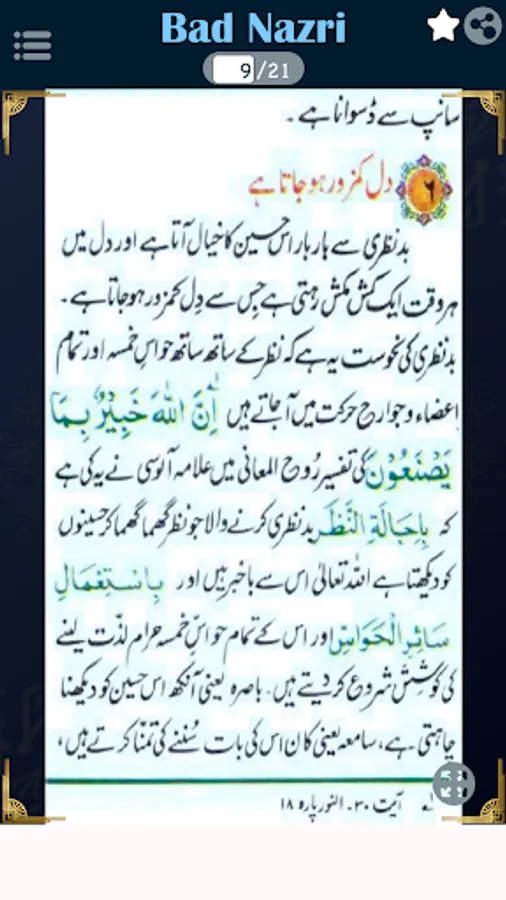 Bad Nazri
9/21
سانپ سے ڈسوانا ہے ۔
۶ دل کمزور ہو جاتا ہے
بدنظری سے بار بار اس حسین کا خیال آتا ہے اور دل میں
ہر وقت ایک کش مکش رہتی ہے جس سے دِل کمزور ہو جاتا ہے ۔
بدنظری کی نحوست یہ ہے کہ نظر کے ساتھ ساتھ حواسِ خمسہ اور تمام
اعضاء و جوارح حرکت میں آ جاتے ہیں اِنَّ اللّٰهَ خَبِيْرٌۢ بِمَا
يَصْنَعُوْنَ کی تفسیر رُوح المعانی میں علامہ آلوسی نے یہ کی ہے
کہ بِاِجَالَةِ النَّظَرِ بدنظری کرنے والا جو نظر گھما گھما کر حسینوں
کو دیکھتا ہے اللہ تعالیٰ اس سے باخبر ہیں اور بِاسْتِعْمَالِ
سَائِرِ الْحَوَاسِّ اور اس کے تمام حواسِّ خمسہ حرام لذّت لینے
کی کوشِش شروع کر دیتے ہیں ۔ باصرہ یعنی آنکھ اس حسین کو دیکھنا
چاہتی ہے، سامعہ یعنی کان اس کی بات سُننے کی تمنّا کرتے ہیں،
لے آیت ۳۰۔ النور پارہ ۱۸